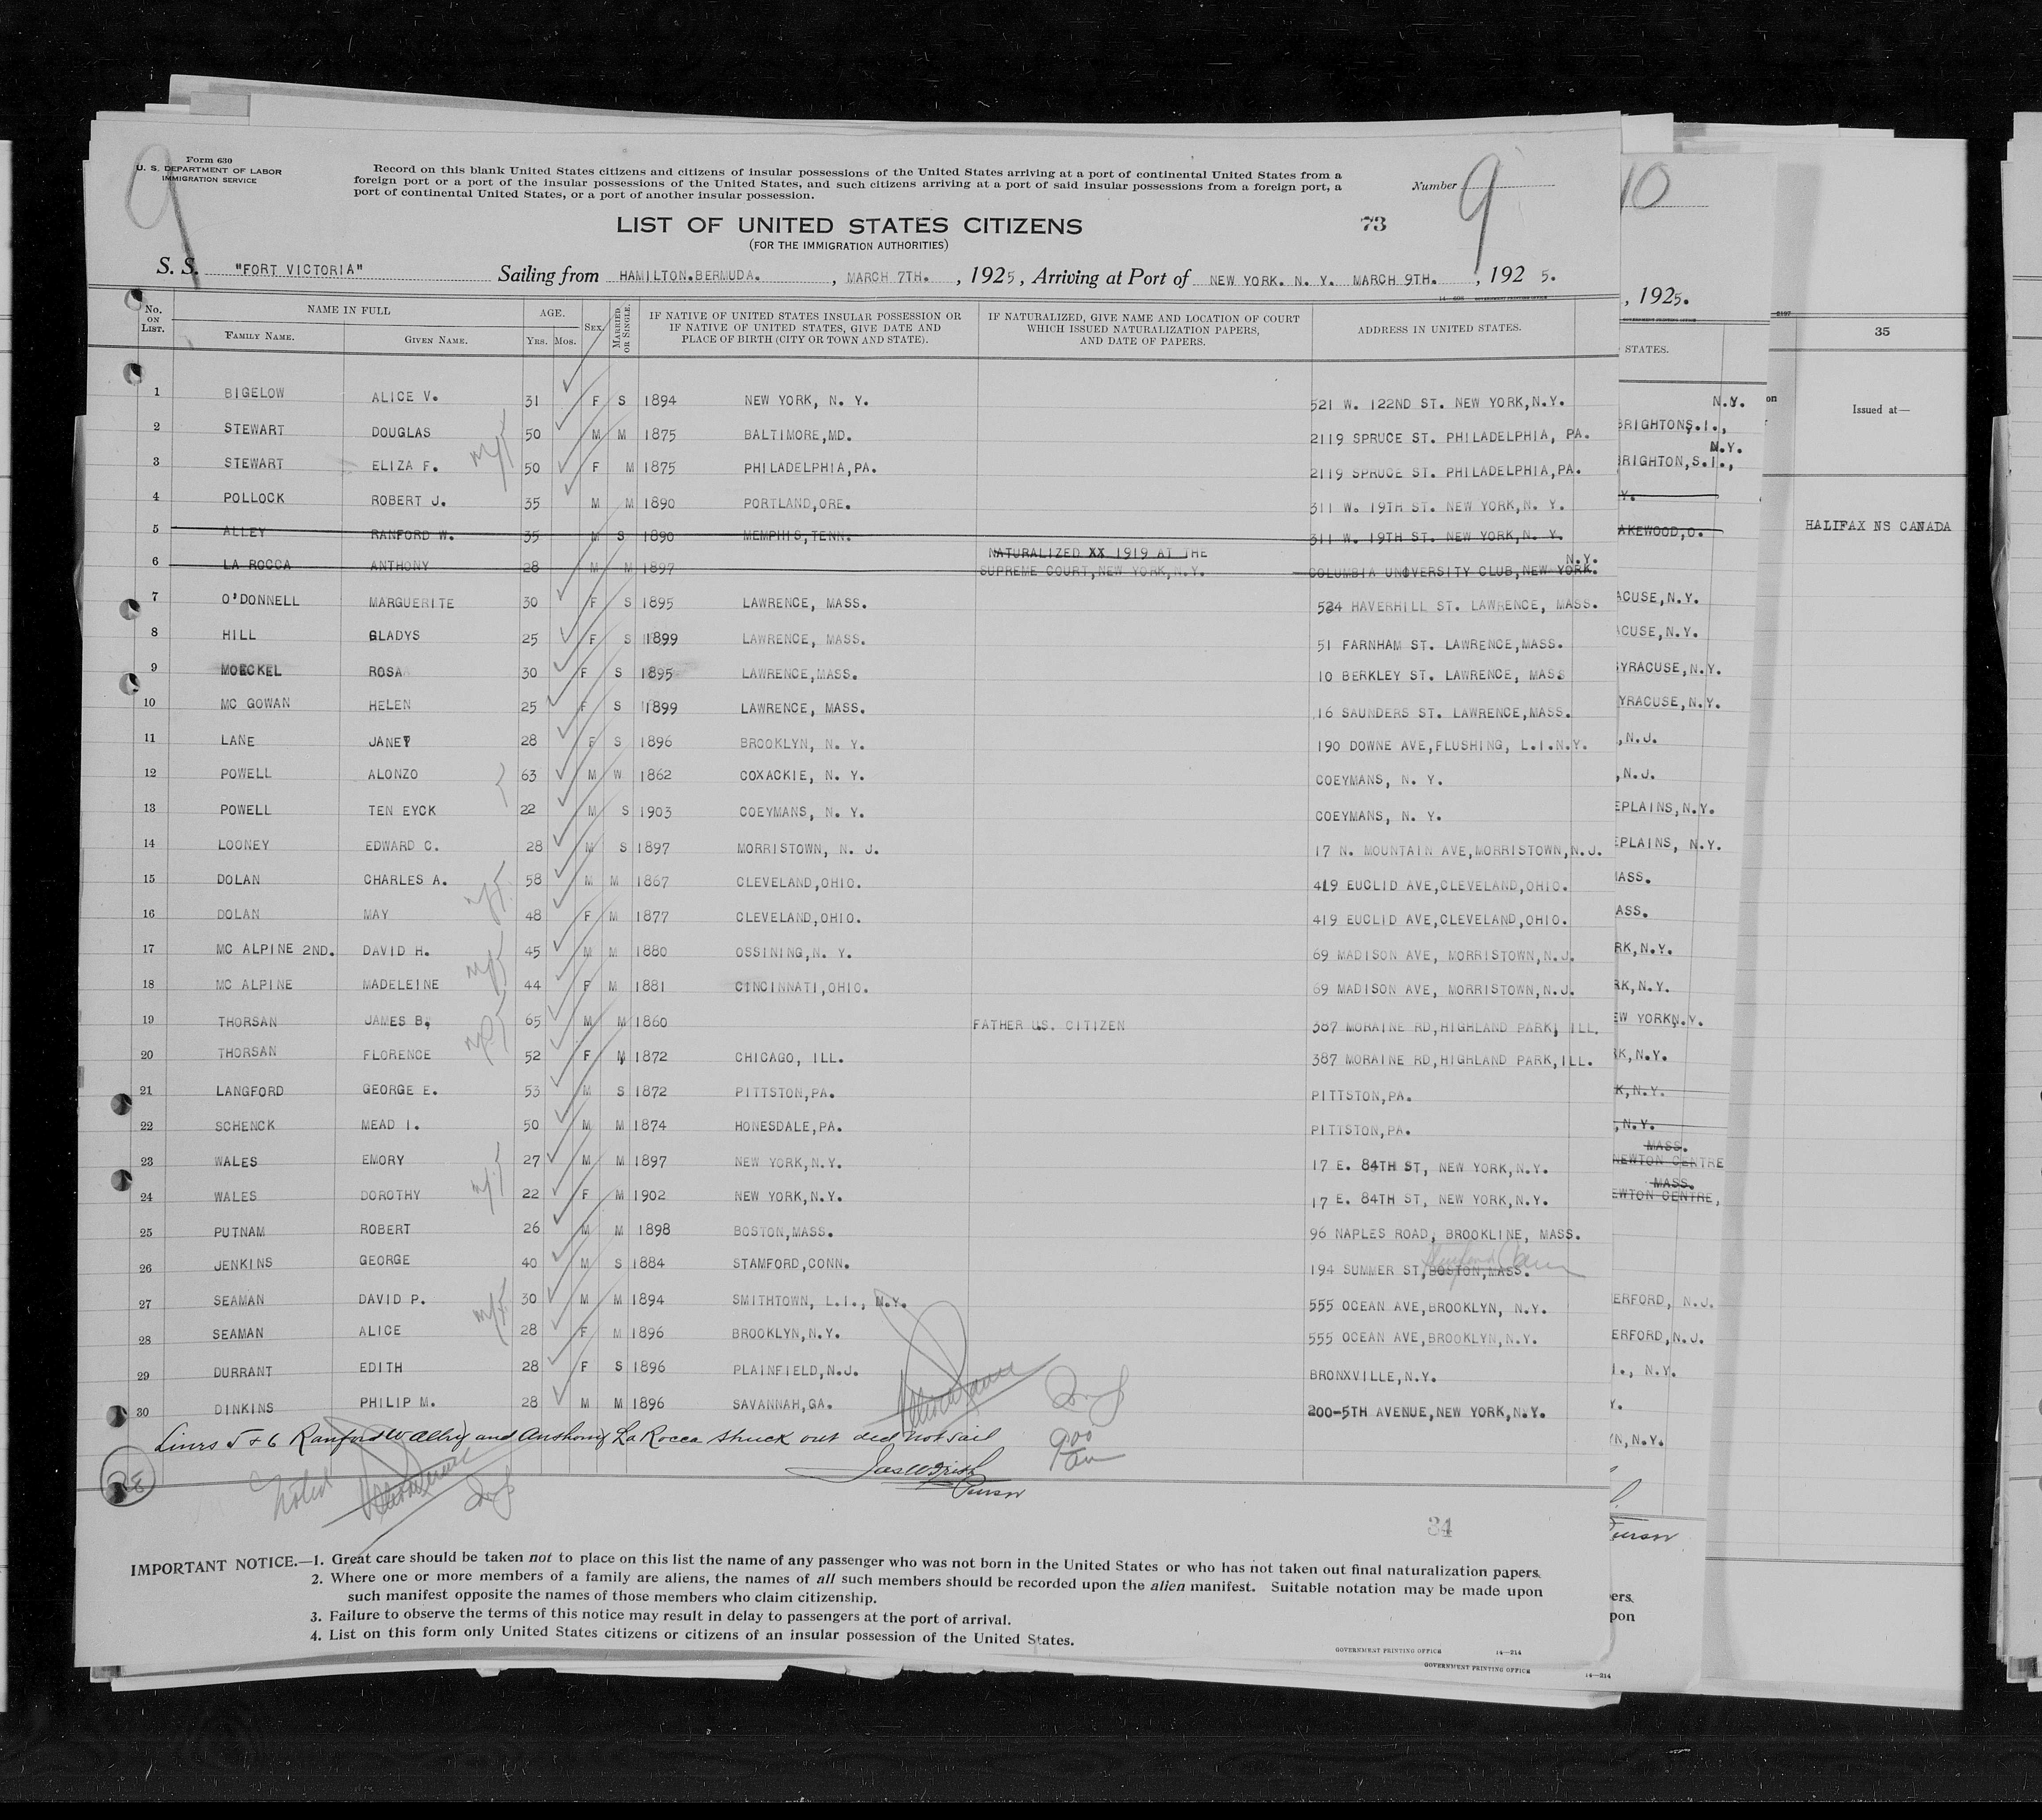 Form 630
U. S. DEPARTMENT OF LABOR
IMMIGRATION SERVICE
9
Record on this blank United States citizens and citizens of insular possessions of the United States arriving at a port of continental United States from a
foreign port or a port of the insular possessions of the United States, and such citizens arriving at a port of said insular possessions from a foreign port, a
port of continental United States, or a port of another insular possession.
Number 9
10
LIST OF UNITED STATES CITIZENS
73
(FOR THE IMMIGRATION AUTHORITIES)
S. S. "FORT VICTORIA" Sailing from HAMILTON.BERMUDA. , MARCH 7TH. , 1925, Arriving at Port of NEW YORK. N. Y. MARCH 9TH. , 192 5.
, 1925.
No. ON LIST. NAME IN FULL FAMILY NAME. GIVEN NAME. AGE. YRS. MOS. SEX. MARRIED OR SINGLE. IF NATIVE OF UNITED STATES INSULAR POSSESSION OR IF NATIVE OF UNITED STATES, GIVE DATE AND PLACE OF BIRTH (CITY OR TOWN AND STATE). IF NATURALIZED, GIVE NAME AND LOCATION OF COURT WHICH ISSUED NATURALIZATION PAPERS, AND DATE OF PAPERS. ADDRESS IN UNITED STATES.
STATES.
35
Issued at—
HALIFAX NS CANADA
1 BIGELOW ALICE V. 31 F S 1894 NEW YORK, N. Y. 521 W. 122ND ST. NEW YORK,N.Y.
2 STEWART DOUGLAS 50 M M 1875 BALTIMORE,MD. 2119 SPRUCE ST. PHILADELPHIA, PA.
3 STEWART ELIZA F. 50 F M 1875 PHILADELPHIA,PA. 2119 SPRUCE ST. PHILADELPHIA,PA.
4 POLLOCK ROBERT J. 35 M M 1890 PORTLAND,ORE. 311 W. 19TH ST. NEW YORK,N. Y.
5 ALLEY RANFORD W. 35 M S 1890 MEMPHIS,TENN. 311 W. 19TH ST. NEW YORK,N. Y.
6 LA ROCCA ANTHONY 28 M M 1897 NATURALIZED XX 1919 AT THE SUPREME COURT,NEW YORK,N.Y. COLUMBIA UNIVERSITY CLUB,NEW YORK. N.Y.
7 O'DONNELL MARGUERITE 30 F S 1895 LAWRENCE, MASS. 524 HAVERHILL ST. LAWRENCE, MASS.
8 HILL GLADYS 25 F S 1899 LAWRENCE, MASS. 51 FARNHAM ST. LAWRENCE,MASS.
9 MOECKEL ROSA 30 F S 1895 LAWRENCE,MASS. 10 BERKLEY ST. LAWRENCE, MASS
10 MC GOWAN HELEN 25 F S 1899 LAWRENCE, MASS. 16 SAUNDERS ST. LAWRENCE,MASS.
11 LANE JANET 28 F S 1896 BROOKLYN, N. Y. 190 DOWNE AVE,FLUSHING, L.I.N.Y.
12 POWELL ALONZO 63 M W 1862 COXACKIE, N. Y. COEYMANS, N. Y.
13 POWELL TEN EYCK 22 M S 1903 COEYMANS, N. Y. COEYMANS, N. Y.
14 LOONEY EDWARD C. 28 M S 1897 MORRISTOWN, N. J. 17 N. MOUNTAIN AVE,MORRISTOWN,N.J.
15 DOLAN CHARLES A. 58 M M 1867 CLEVELAND,OHIO. 419 EUCLID AVE,CLEVELAND,OHIO.
16 DOLAN MAY 48 F M 1877 CLEVELAND,OHIO. 419 EUCLID AVE,CLEVELAND,OHIO.
17 MC ALPINE 2ND. DAVID H. 45 M M 1880 OSSINING,N. Y. 69 MADISON AVE, MORRISTOWN,N.J.
18 MC ALPINE MADELEINE 44 F M 1881 CINCINNATI,OHIO. 69 MADISON AVE, MORRISTOWN,N.J.
19 THORSAN JAMES B. 65 M M 1860 FATHER U.S. CITIZEN 387 MORAINE RD,HIGHLAND PARK, ILL.
20 THORSAN FLORENCE 52 F M 1872 CHICAGO, ILL. 387 MORAINE RD,HIGHLAND PARK,ILL.
21 LANGFORD GEORGE E. 53 M S 1872 PITTSTON,PA. PITTSTON,PA.
22 SCHENCK MEAD I. 50 M M 1874 HONESDALE,PA. PITTSTON,PA.
23 WALES EMORY 27 M M 1897 NEW YORK,N.Y. 17 E. 84TH ST, NEW YORK,N.Y.
24 WALES DOROTHY 22 F M 1902 NEW YORK,N.Y. 17 E. 84TH ST, NEW YORK,N.Y.
25 PUTNAM ROBERT 26 M M 1898 BOSTON,MASS. 96 NAPLES ROAD, BROOKLINE, MASS.
26 JENKINS GEORGE 40 M S 1884 STAMFORD,CONN. 194 SUMMER ST,BOSTON,MASS. Stamford Conn
27 SEAMAN DAVID P. 30 M M 1894 SMITHTOWN, L.I., N.Y. 555 OCEAN AVE,BROOKLYN, N.Y.
28 SEAMAN ALICE 28 F M 1896 BROOKLYN,N.Y. 555 OCEAN AVE,BROOKLYN,N.Y.
29 DURRANT EDITH 28 F S 1896 PLAINFIELD,N.J. BRONXVILLE,N.Y.
30 DINKINS PHILIP M. 28 M M 1896 SAVANNAH,GA. 200-5TH AVENUE,NEW YORK,N.Y.
Lines 5 & 6 Ranford W Alley and Anthony La Rocca struck out did not sail
900 am
Purser
Noted
34
IMPORTANT NOTICE.—1. Great care should be taken not to place on this list the name of any passenger who was not born in the United States or who has not taken out final naturalization papers.
2. Where one or more members of a family are aliens, the names of all such members should be recorded upon the alien manifest. Suitable notation may be made upon
such manifest opposite the names of those members who claim citizenship.
3. Failure to observe the terms of this notice may result in delay to passengers at the port of arrival.
4. List on this form only United States citizens or citizens of an insular possession of the United States.
GOVERNMENT PRINTING OFFICE 14—214
GOVERNMENT PRINTING OFFICE 14—214